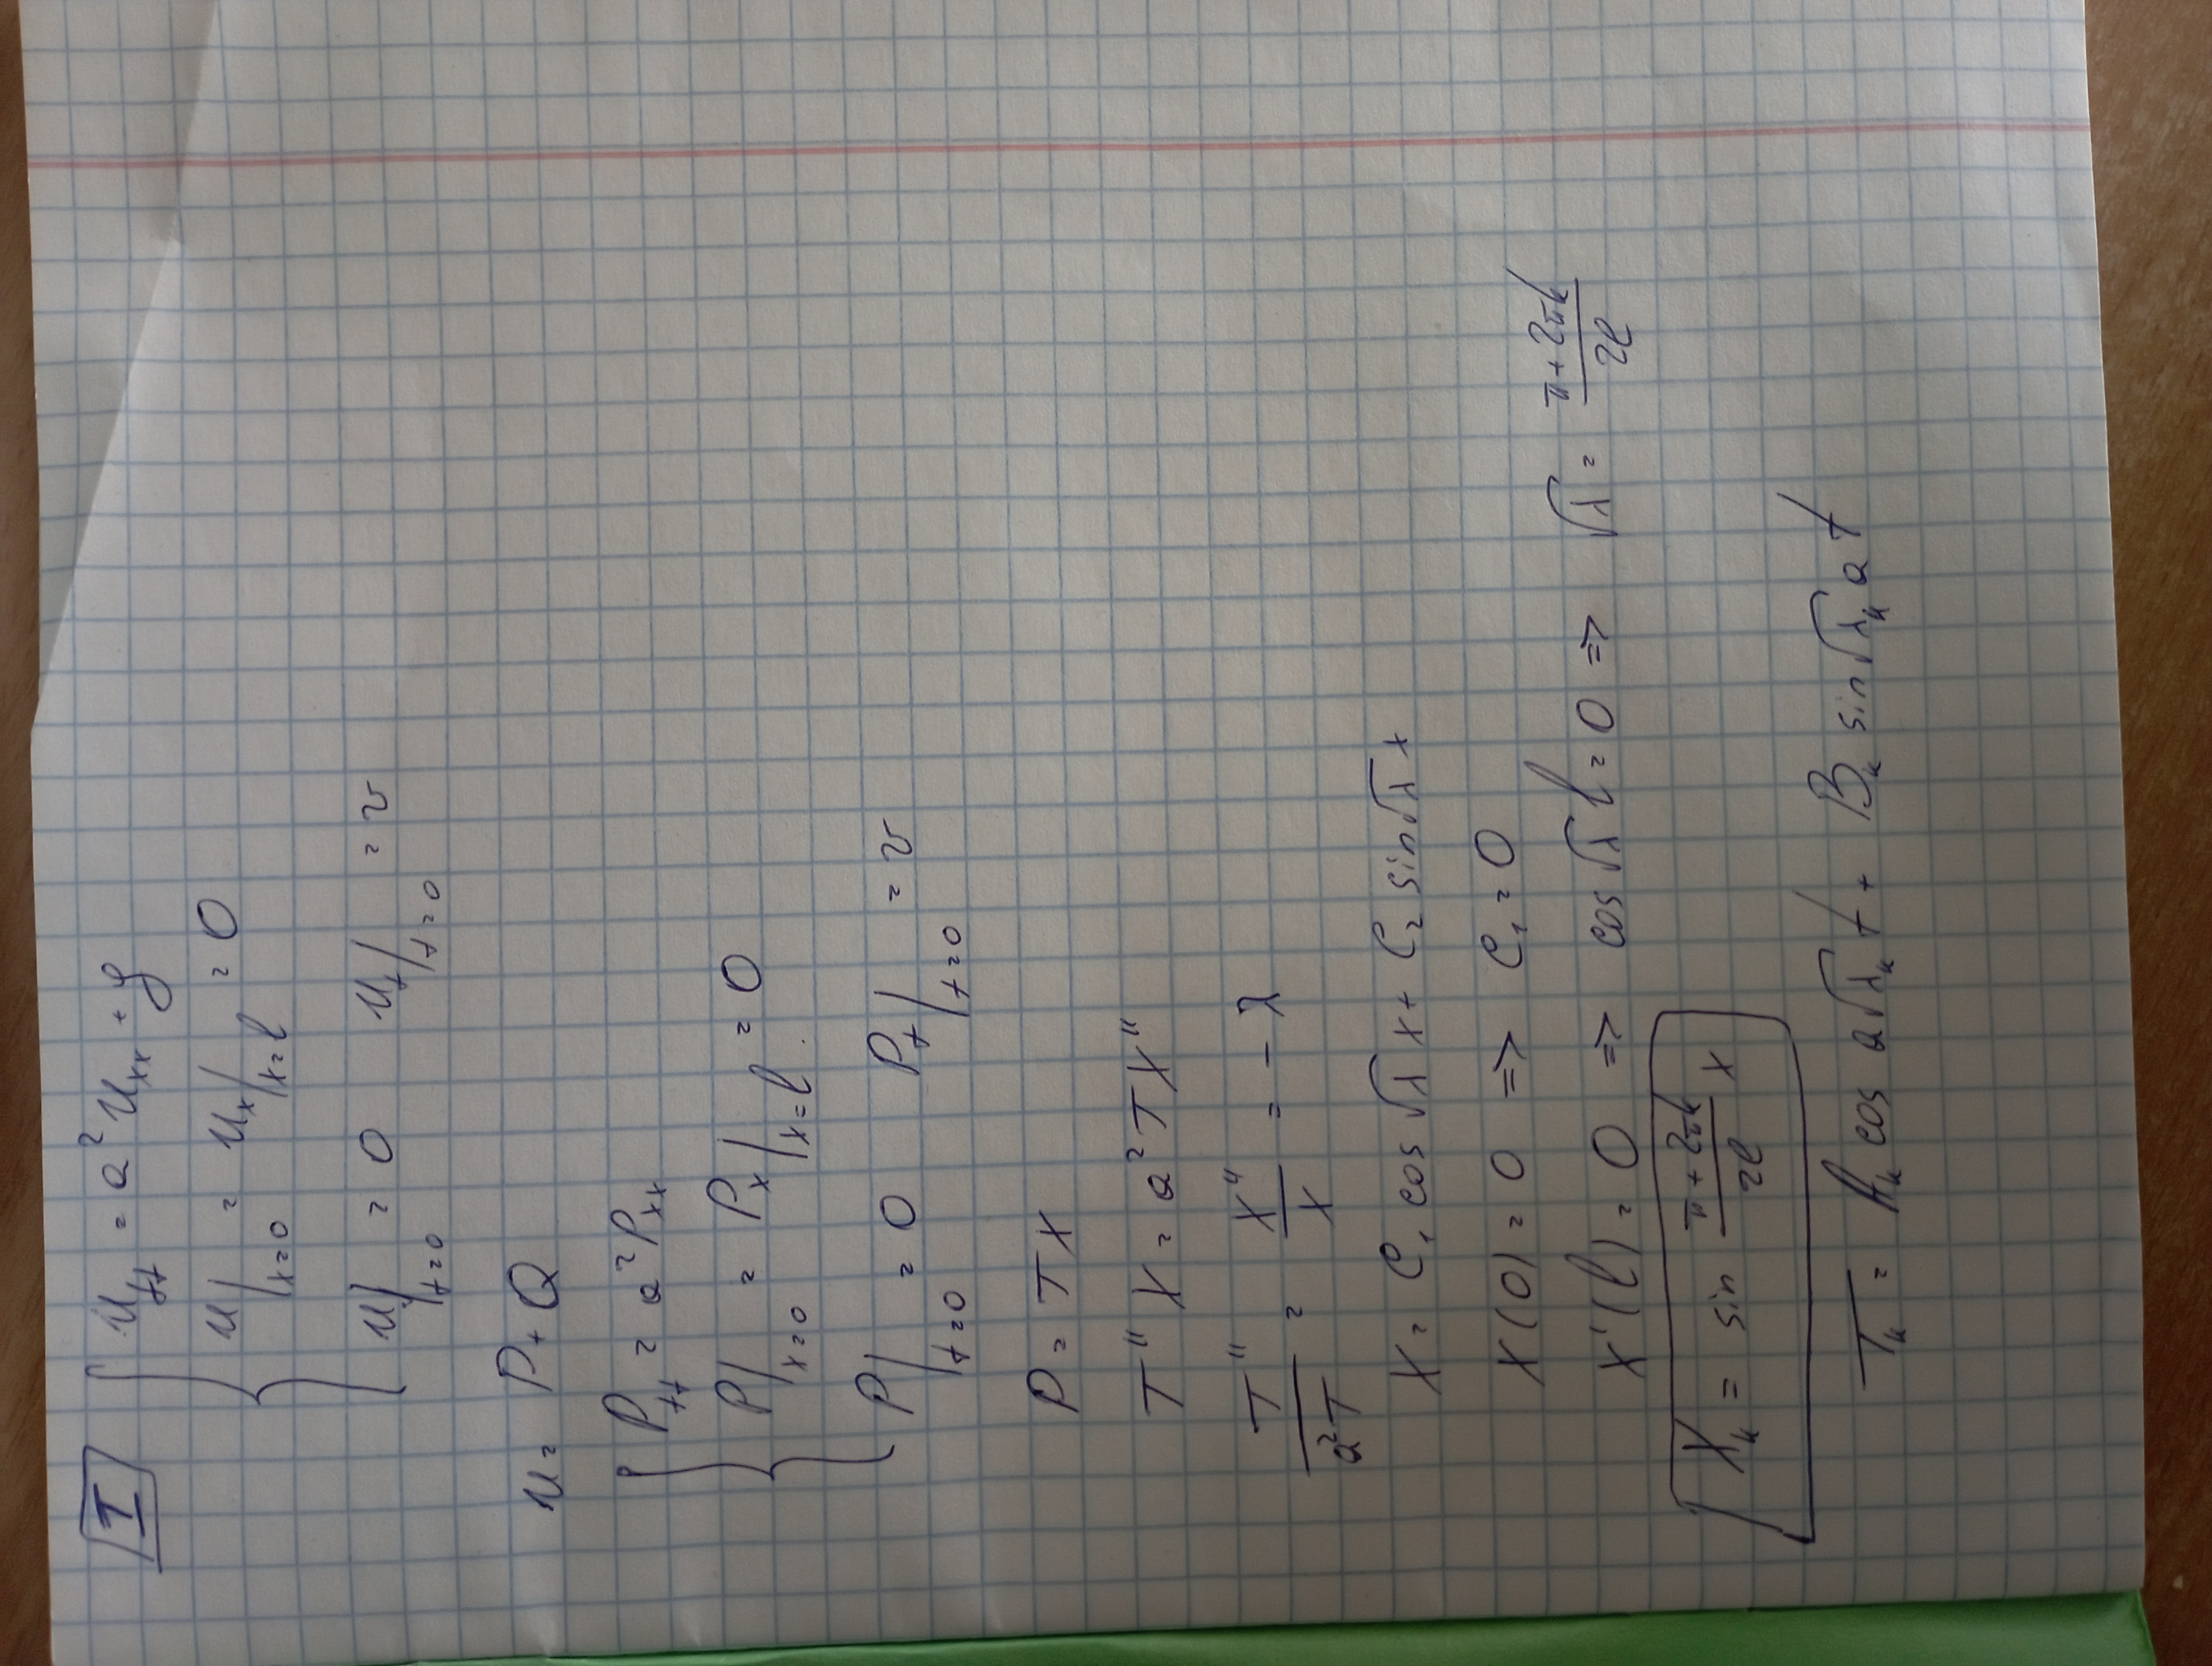 I
u_tt = a² u_xx + g
u|_x=0 = u_x|_x=l = 0
u|_t=0 = 0 u_t|_t=0 = v
u = P + Q
P_tt = a² P_xx
P|_x=0 = P_x|_x=l = 0
P|_t=0 = 0 P_t|_t=0 = v
P = TX
T'' X = a² T X''
T''/(a² T) = X''/X = - λ
X = C₁ cos √λ x + C₂ sin √λ x
X(0) = 0 => C₁ = 0
X'(l) = 0 => cos √λ l = 0 => √λ = (π + 2πk)/(2l)
X_k = sin (π + 2πk)/(2l) x
T_k = A_k cos a√λ_k t + B_k sin √λ_k a t